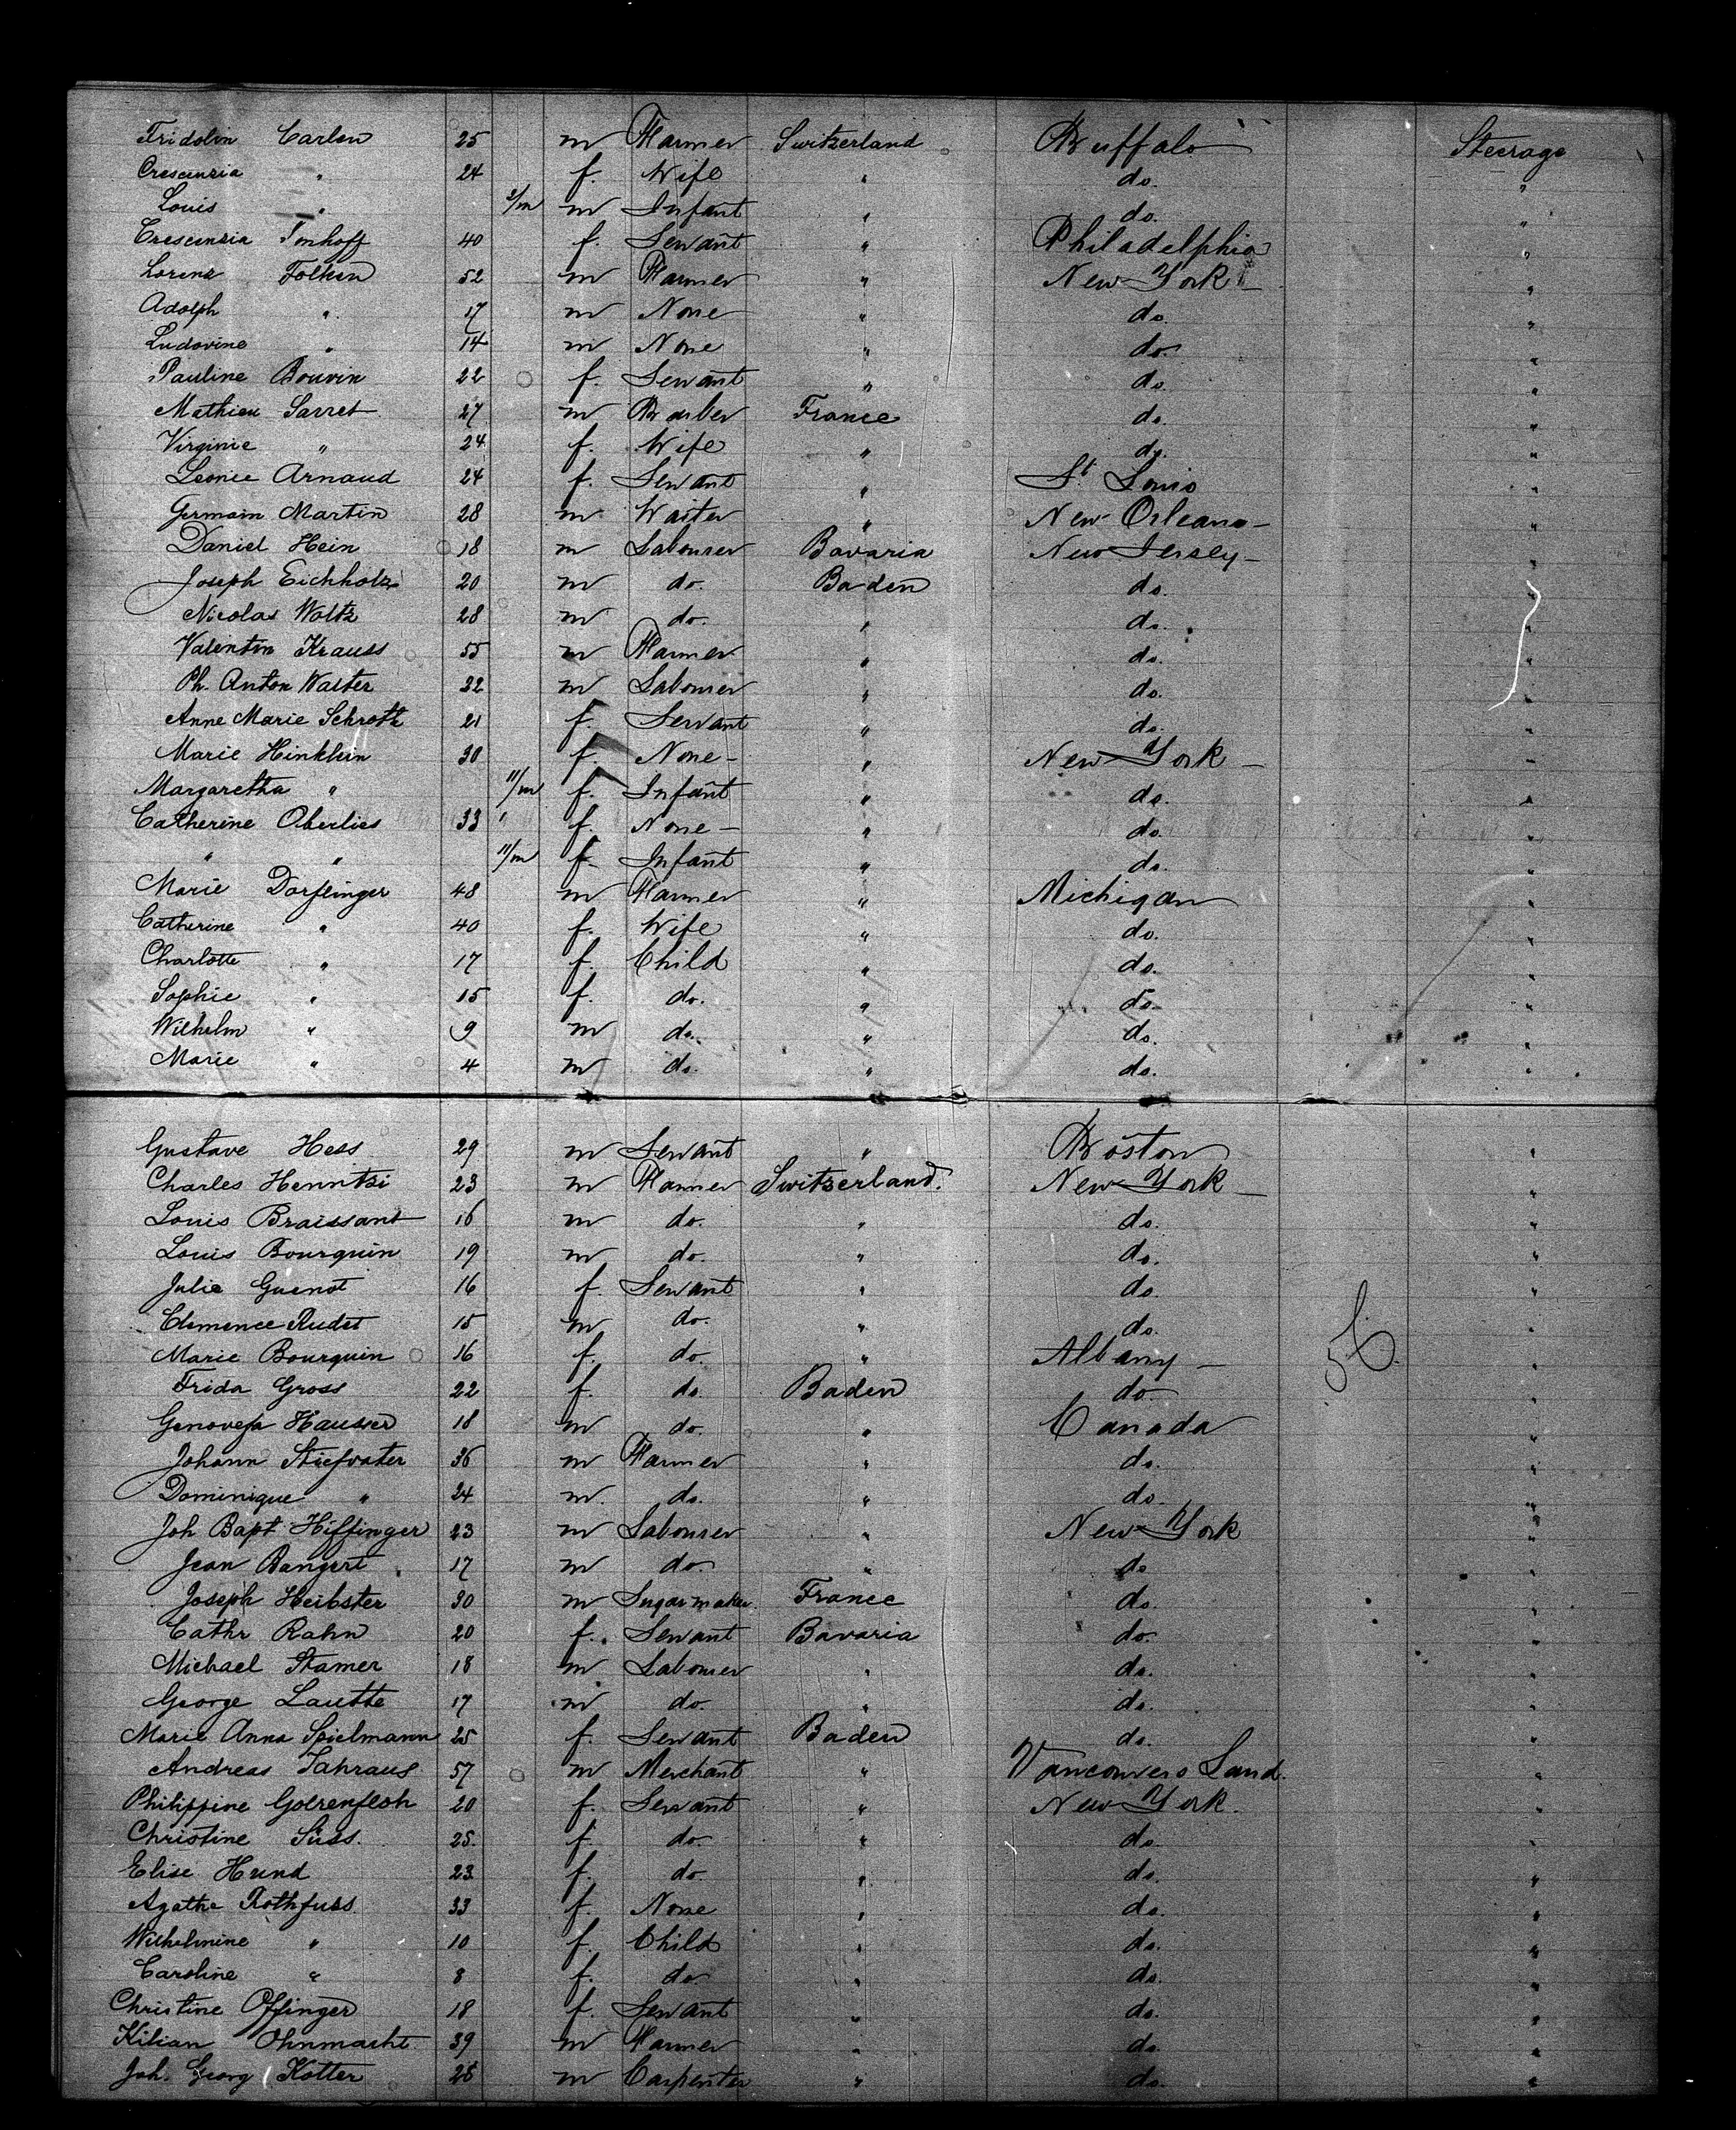 Fridolin Carlen 25 m Farmer Switzerland Buffalo Steerage
Crescenzia " 24 f. Wife " do. "
Louis " 2/m m Infant " do. "
Crescenzia Imhoff 40 f. Servant " Philadelphia "
Lorenz Folken 52 m Farmer " New York "
Adolph " 17 m None " do. "
Ludovine " 14 m None " do. "
Pauline Bouvin 22 f. Servant " do. "
Mathieu Sarret 27 m Barber France do. "
Virginie " 24 f. Wife " do. "
Leonie Arnaud 24 f. Servant " St. Louis "
Germain Martin 28 m Waiter " New Orleans "
Daniel Hein 18 m Labourer Bavaria New Jersey "
Joseph Eichholz 20 m do. Baden do. "
Nicolas Woltz 28 m do. " do. "
Valentin Krauss 55 m Farmer " do. "
Ph. Anton Walter 22 m Labourer " do. "
Anne Marie Schroth 21 f. Servant " do. "
Marie Hinklein 30 f. None " New York "
Margaretha " 11/m f. Infant " do. "
Catherine Oberlies 33 f. None " do. "
" " 11/m f. Infant " do. "
Marie Dorflinger 48 m Farmer " Michigan "
Catherine " 40 f. Wife " do. "
Charlotte " 17 f. Child " do. "
Sophie " 15 f. do. " do. "
Wilhelm " 9 m do. " do. "
Marie " 4 m do. " do. "
Gustave Hess 29 m Servant " Boston "
Charles Henntzi 23 m Farmer Switzerland. New York "
Louis Braissant 16 m do. " do. "
Louis Bourquin 19 m do. " do. "
Julie Guenot 16 f. Servant " do. "
Clemence Rudet 15 m do. " do. "
Marie Bourquin 16 f. do. " Albany "
Frida Gross 22 f. do. Baden do. "
Genovefa Hausser 18 m do. " Canada "
Johann Stiefvater 36 m Farmer " do. "
Dominique " 24 m. do. " do. "
Joh Bapt Hiffinger 23 m Labourer " New York "
Jean Bangert 17 m do. " do "
Joseph Heibster 30 m Sugar maker France do. "
Cathr Rahn 20 f. Servant Bavaria do. "
Michael Stamer 18 m Labourer " do. "
George Lautte 17 m do. " do. "
Marie Anna Spielmann 25 f. Servant Baden do. "
Andreas Sahraus 57 m Merchant " Vancouvers Land. "
Philippine 20 f. Servant " New York. "
Christine Süss. 25. f. do. " do. "
Elise Hund 23 f. do. " do. "
Agathe Rothfuss. 33 f. None " do. "
Wilhelmine " 10 f. Child " do. "
Caroline " 8 f. do. " do. "
Christine Offinger 18 f. Servant " do. "
Kilian Ohnmacht 39 m Farmer " do. "
Joh. Georg Kotter 25 m Carpenter " do. "